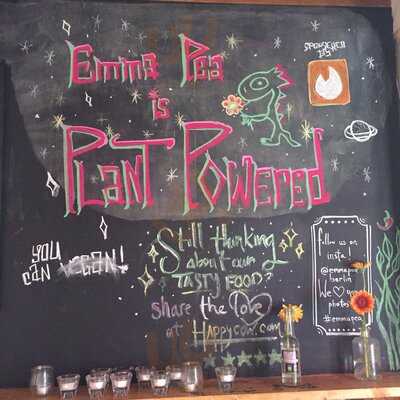 Emma Pea
is
Plant Powered
SPONSORED
BY
YOU
CAN VEGAN!
Still thinking
about our
TASTY FOOD?
Share the Love
at Happycow.com
follow us on
insta!
@emmapea
berlin
We ♡ your
photos
#emmapea